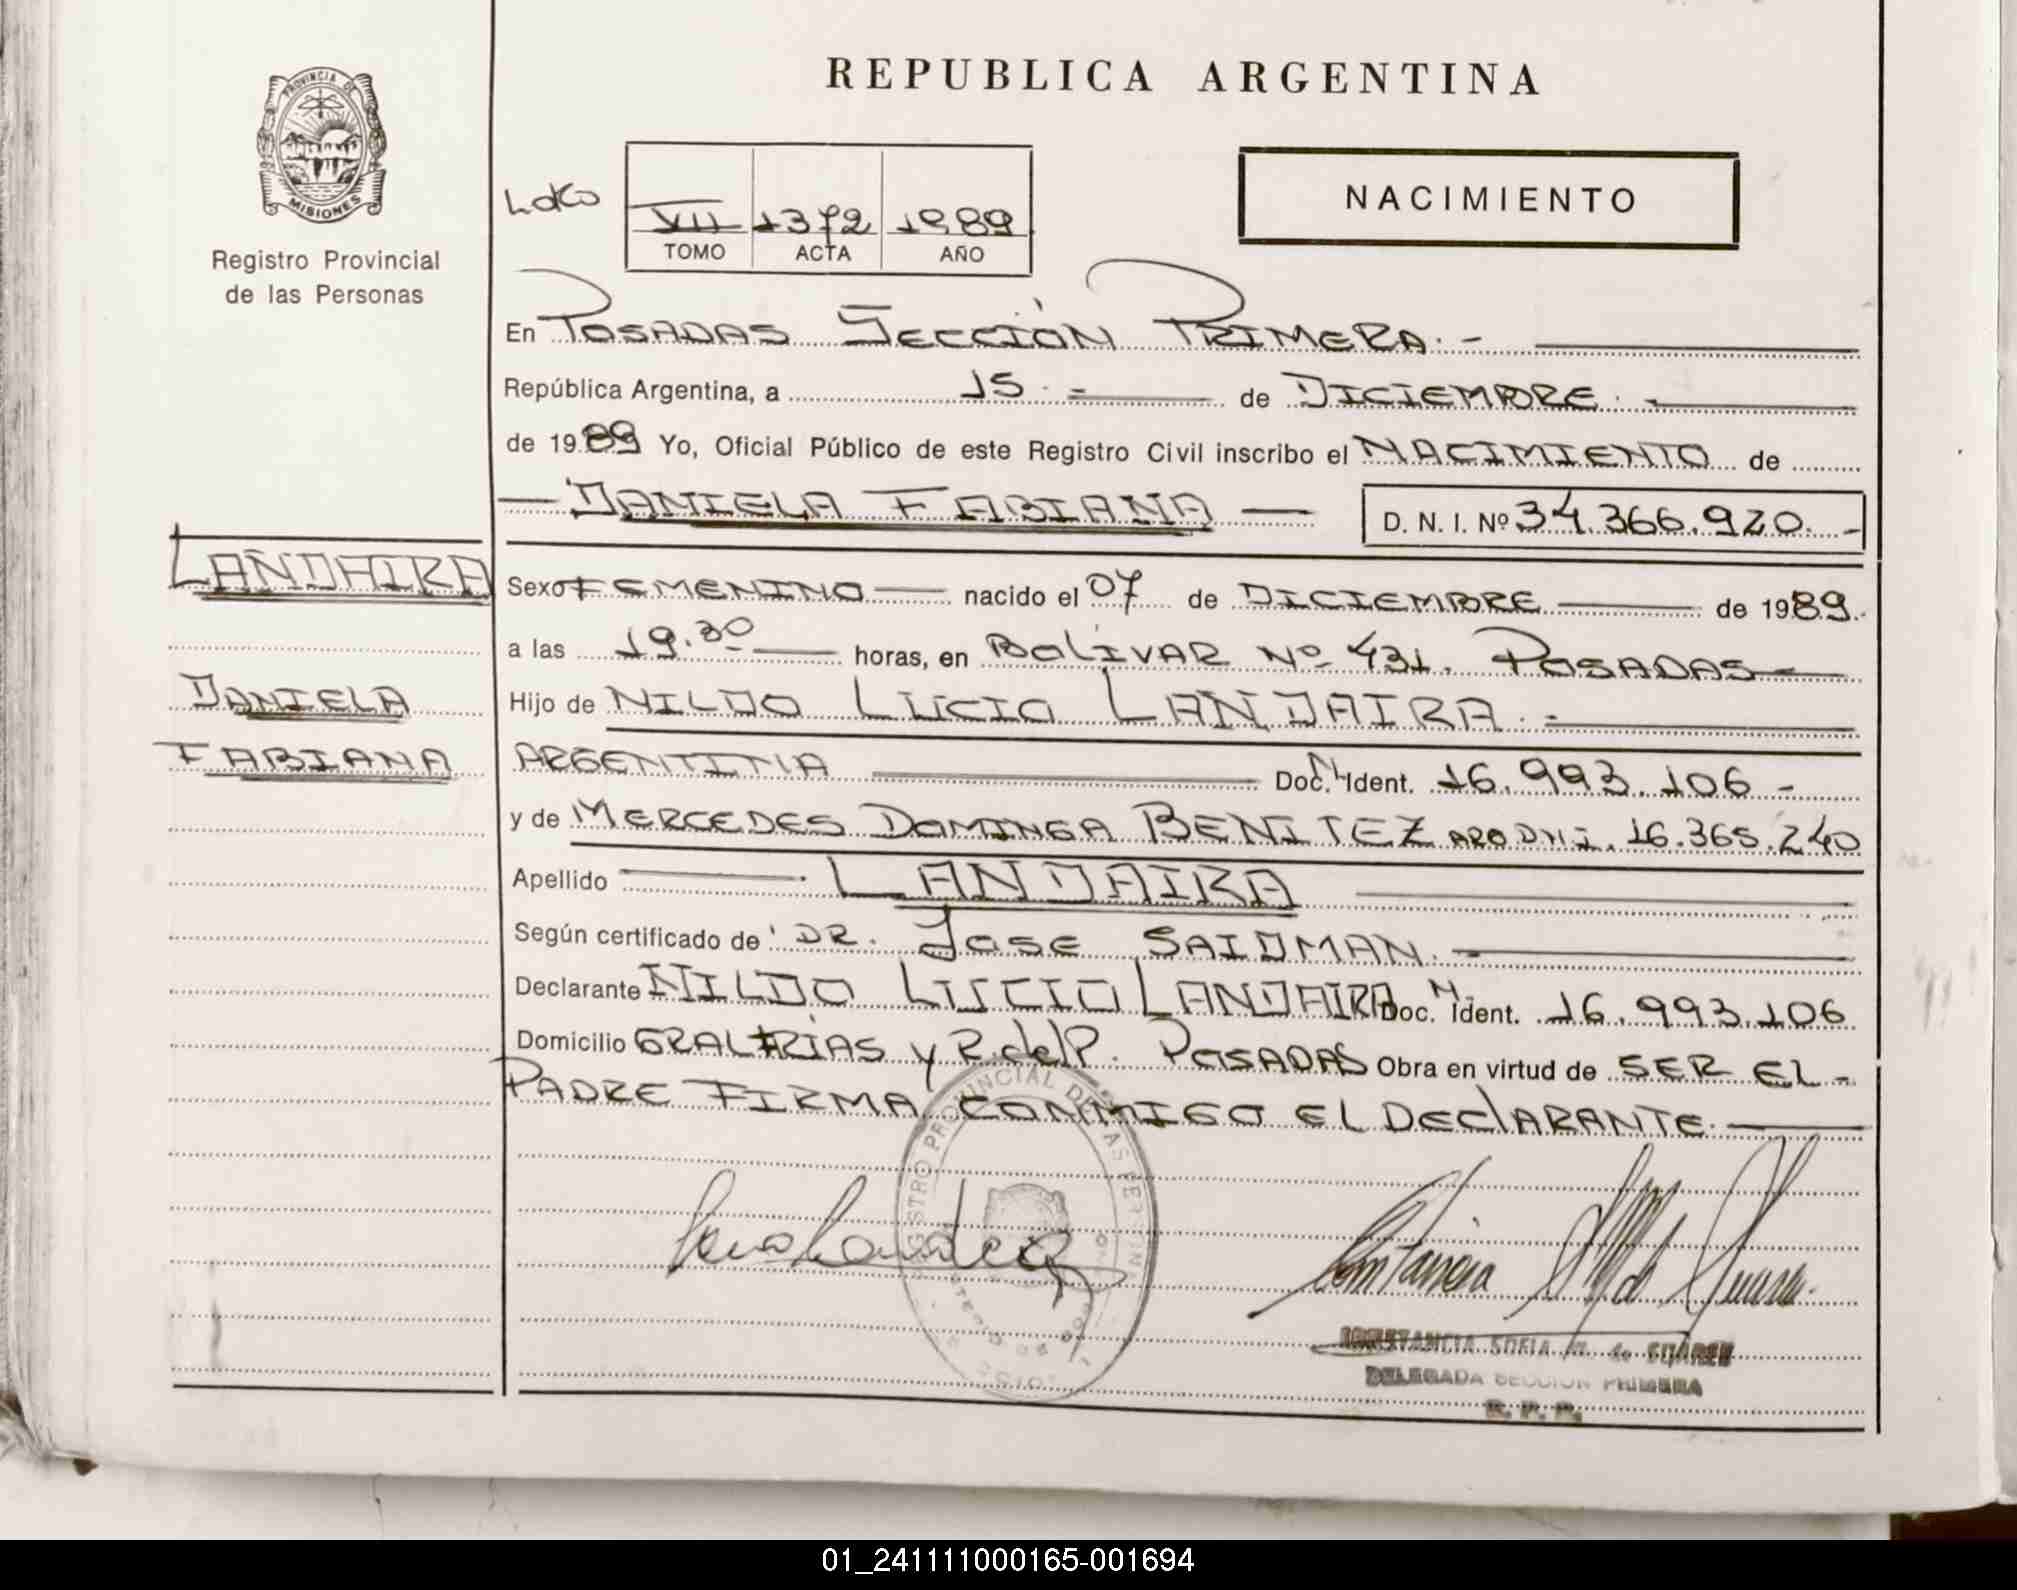 REPUBLICA ARGENTINA
PROVINCIA DE
MISIONES
Registro Provincial
de las Personas
VII 1372 1989
TOMO ACTA AÑO
NACIMIENTO
En POSADAS SECCIÓN PRIMERA.-
República Argentina, a 15.- de DICIEMBRE.-
de 1989 Yo, Oficial Público de este Registro Civil inscribo el NACIMIENTO de
DANIELA FABIANA D. N. I. Nº 34.366.920.-
LANDAIRA
DANIELA
FABIANA
Sexo FEMENINO nacido el 07 de DICIEMBRE de 1989.
a las 19.30 horas, en BOLÍVAR Nº 431. POSADAS
Hijo de NILDO LUCIO LANDAIRA.-
ARGENTINA Doc. N. Ident. 16.993.106-
y de MERCEDES DOMINGA BENITEZ ARG D.N.I. 16.365.240
Apellido LANDAIRA
Según certificado de DR. JOSE SAIDMAN.-
Declarante NILDO LUCIO LANDAIRA Doc. N. Ident. 16.993.106
Domicilio GRAL FRÍAS y R. del P. POSADAS Obra en virtud de SER EL-
PADRE FIRMA CONMIGO EL DECLARANTE.
REGISTRO PROVINCIAL DE LAS PERSONAS
CONSTANCIA SOFIA M. de SUAREZ
DELEGADA SECCION PRIMERA
R. P. P.
01_241111000165-001694